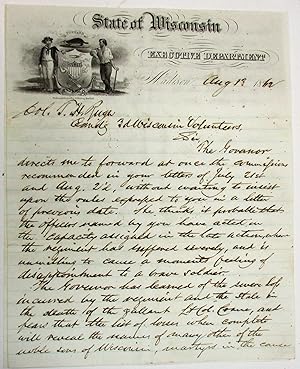 State of Wisconsin
EXECUTIVE DEPARTMENT
Madison Aug 13 1862
Col. T. H. Ruger
Comdg 3d Wisconsin Volunteers,
Sir
The Governor
directs me to forward at once the commissions
recommended in your letters of July 21st
and Aug. 2d, without waiting to insist
upon the rules expressed to you in a letter
of previous date. He thinks it probable that
the officers named by you have acted in
the capacity assigned in the late action where
the regiment has suffered severely, and is
unwilling to cause a moments feeling of
disappointment to a brave soldier.
The Governor has learned of the severe loss
incurred by the regiment and the State in
the death of the gallant Lt Col. Crane, and
fears that the list of losses when complete
will reveal the names of many other of the
noble sons of Wisconsin, martyrs in the cause